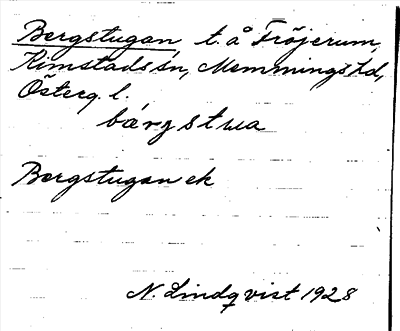 Bergstugan t. å Fröjerum,
Kimstads sn, Memmings hd,
Österg. l.
bærgstua
Bergstugan ek
N. Lindqvist 1928